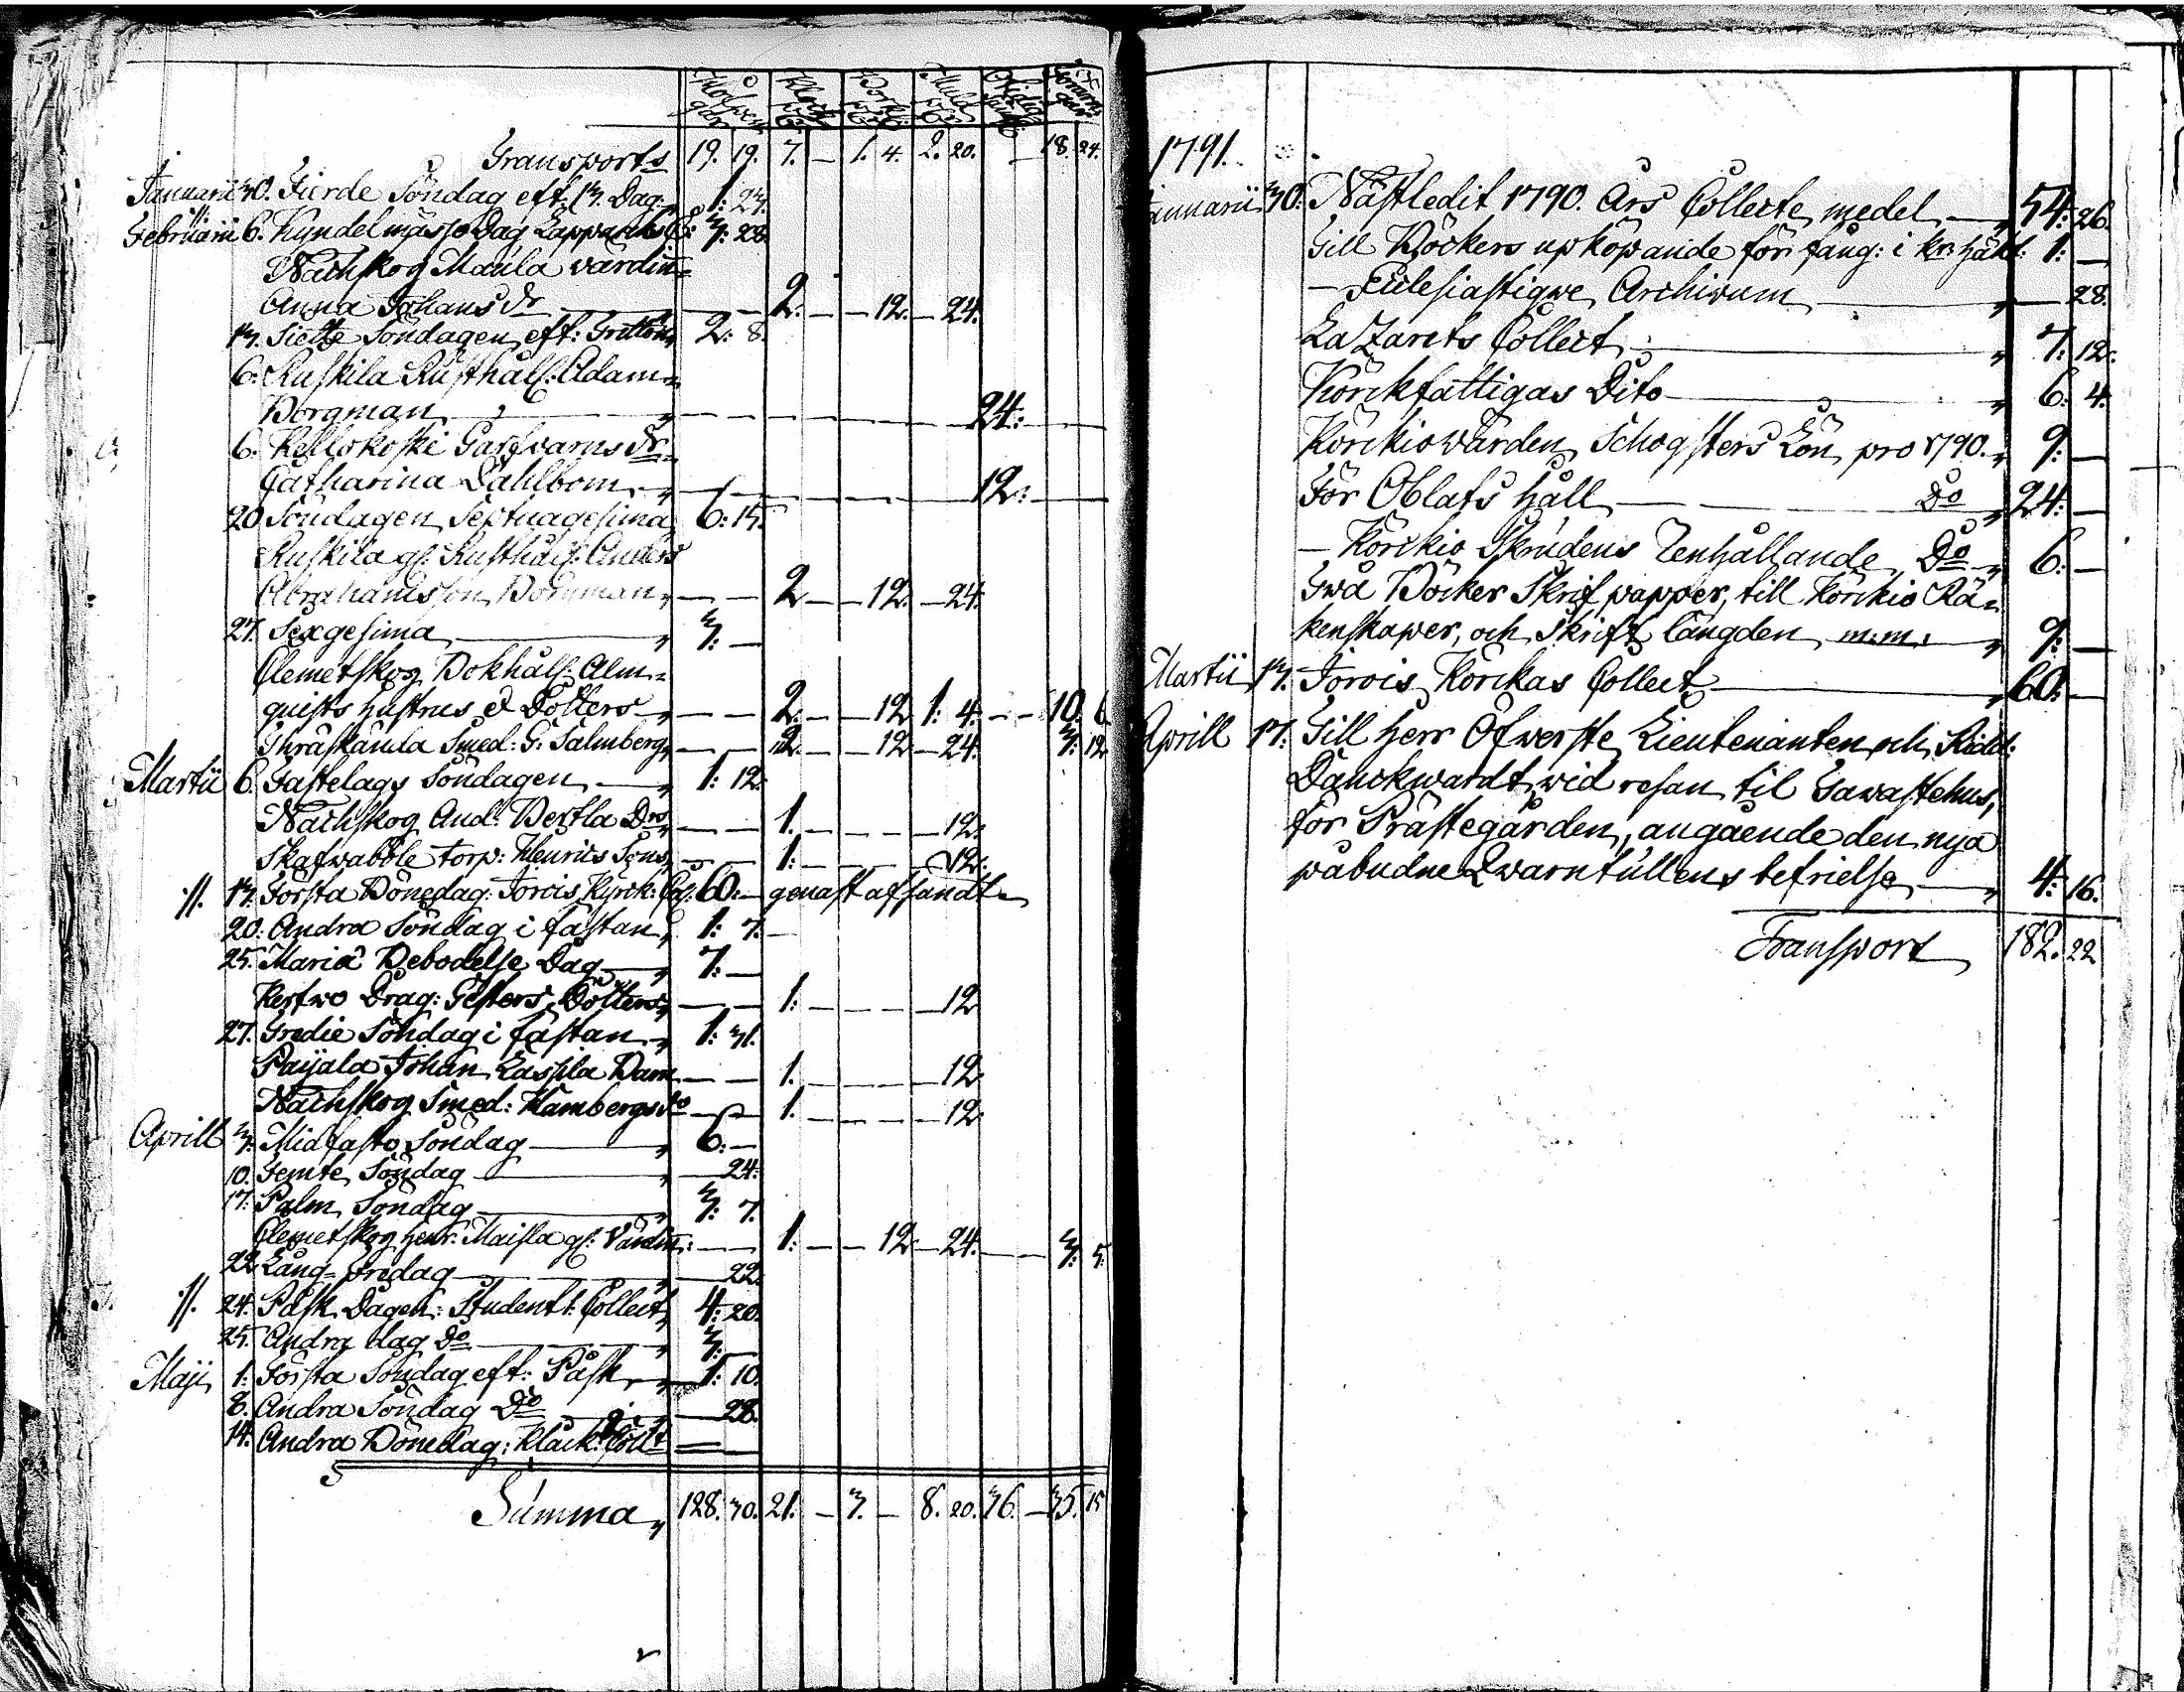 Transports 19. 19. 7. — 1. 4. 2. 20. — 18. 24.
Januarii 30. Fierde Söndag eft: 13. Dag. 1: 23.
Februarii 6. Kyndelmässo Dag Lappmarks C: 3: 28.
Nachskog Maula värdin=
Anna Johans dr — 2. — — 12. — 24.
13. Siette Söndagen eft: Tretton 2: 8.
6. Ruskila Rusthåll: Adam
Borgman — 24:
6. Kellokoski Garfvarns dr
Catharina Dahlbom — 12:
20. Söndagen Septuagesima 6: 15.
Ruskila gl: Rusthåll: Anders
Abrahamsson Borgman — 2 — — 12. — 24.
27. Sexgesima — 3: —
Clemetskog Bokhåll: Alm=
quists hustrus & Dotters — 2. — — 12. 1: 4. — — 10. 6.
Thräskända Smed: G: Salmberg — 2. — — 12 — 24. 3: 12
Martii 6. Fastelags Söndagen — 1: 12.
Nachskog And: Bertla Drs — 1. — — — 12.
Skafwaböle torp: Henrics Sons — 1: — 12.
./. 13. Första Bönedag: Jorois Kyrck: Col: 60: — genast afsändt
20. Andra Söndag i fastan 1: 7. —
25. Mariæ Bebodelse Dag — 7: —
Kerfwo Drag: Gesters Dotters — 1: — — — 12
27. Tredie Söndag i fastan 1: 31.
Paijala Johan Laspla Barn — 1. — — — 12
Nachskog Smed: Hambergs do — 1. — — — 12.
Aprill 3: Midfasto Söndag — 6: —
10. Femte Söndag — 24:
17. Palm Söndag — 3: 7.
Clemetskog Henr: Maisla gl: Värdin: — 1: — — 12. — 24. — — 3: 5.
22. Lång=fredag — 22.
./. 24. Påsk Dagen: Student: Collect 4: 20.
25. Andra dag Do — 3: —
Maji 1: Första Söndag eft: Påsk — 1: 10.
8. Andra Söndag Do — 28.
14. Andra Bönedag: Coll:t —
Summa 128. 30. 21. — 3. — 8. 20. 36. — 35. 15
1791.
Januarii 30. Nästledit 1790. Års Collecte medel — 54: 26.
Till Böckers upköpande för fång: i kr: häkt: 1: —
— Ecclesiastiqve Archivum — 28.
Lazarets Collect — 7: 12.
Körckfattigas Dito — 6: 4.
Körckiowärden Schogsters Lön pro 1790. 9: —
För Oblats håll — Do 24: —
— Körckio Skrudens Renhållande Do 6: —
Twå Böcker Skrif papper, till Körckio Rä=
kenskaper, och Skrift längden m:m: 9: —
Martii 13. Jorois Körckas Collect — 60: —
Aprill 17: Till Herr Öfwerste Lieutenanten och Ridd:
Danckwardt wid resan til Tawastehus,
för Prästegården, angående den nya
påbudne Qwarntullens befrielse 4: 16.
Transport 182. 22